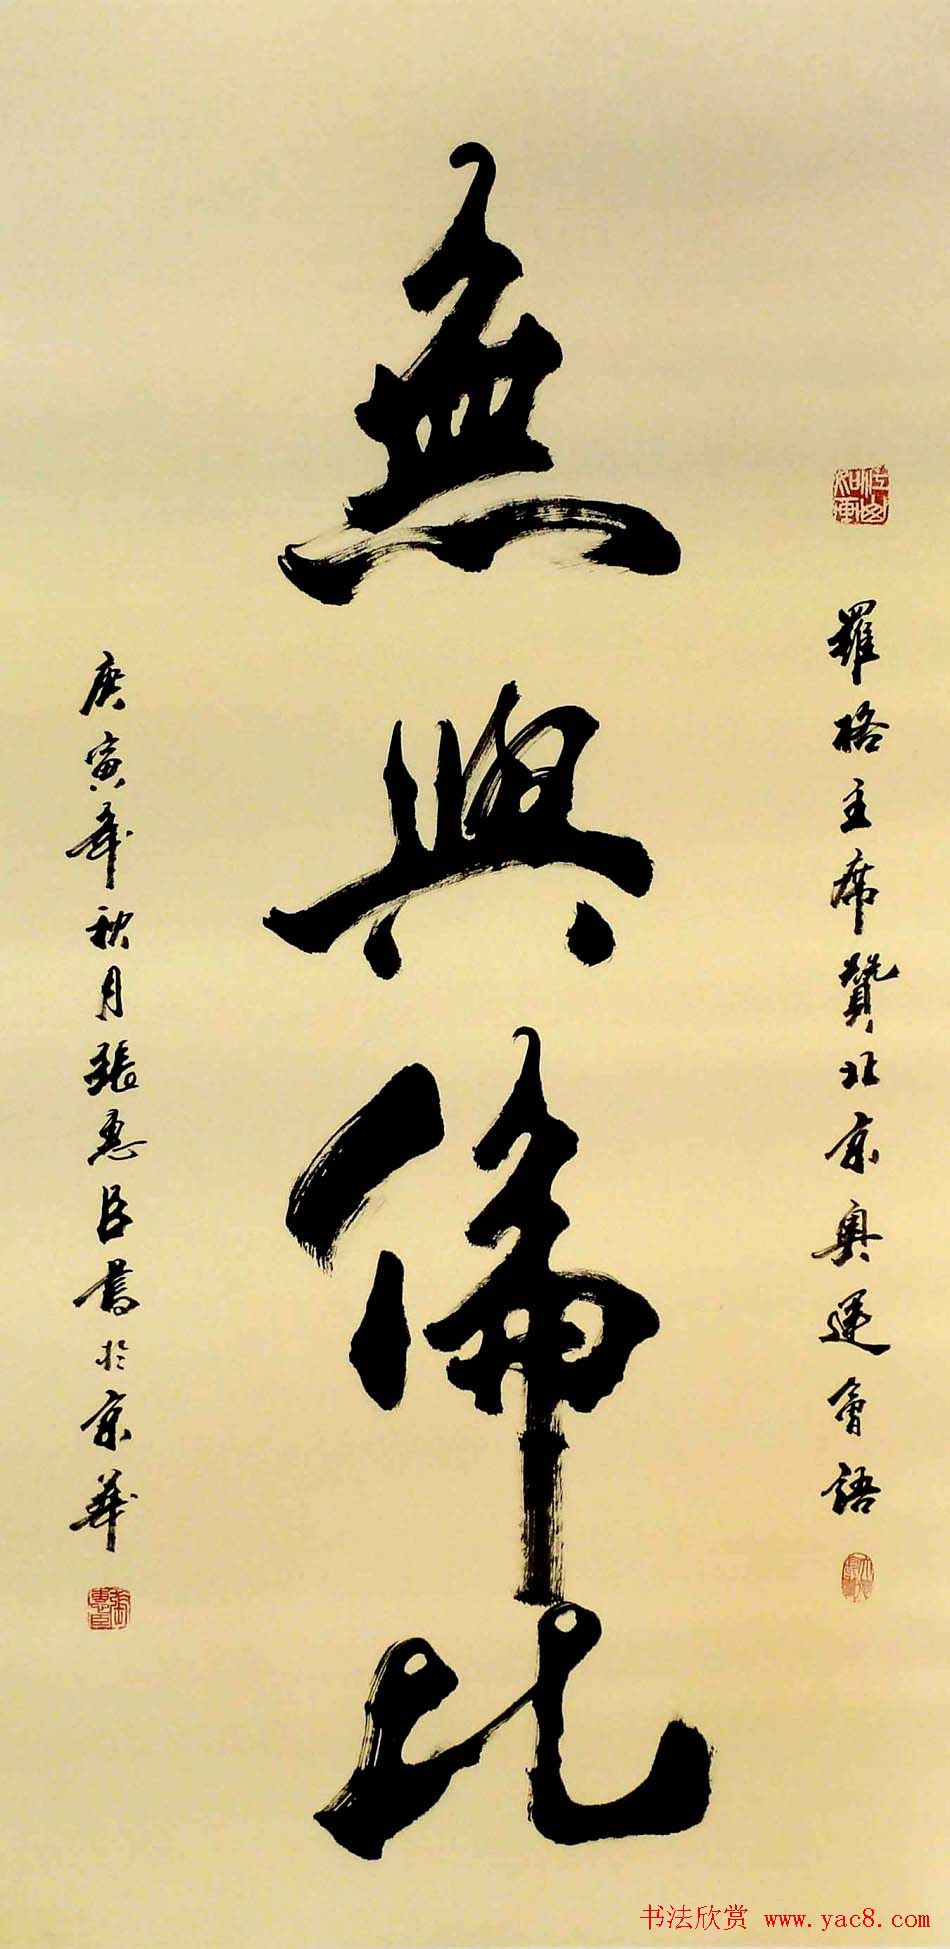 羅格主席贊北京奧運會語
無與倫比
庚寅年秋月張惠臣書於京華
張惠臣
书法欣赏 www.yac8.com